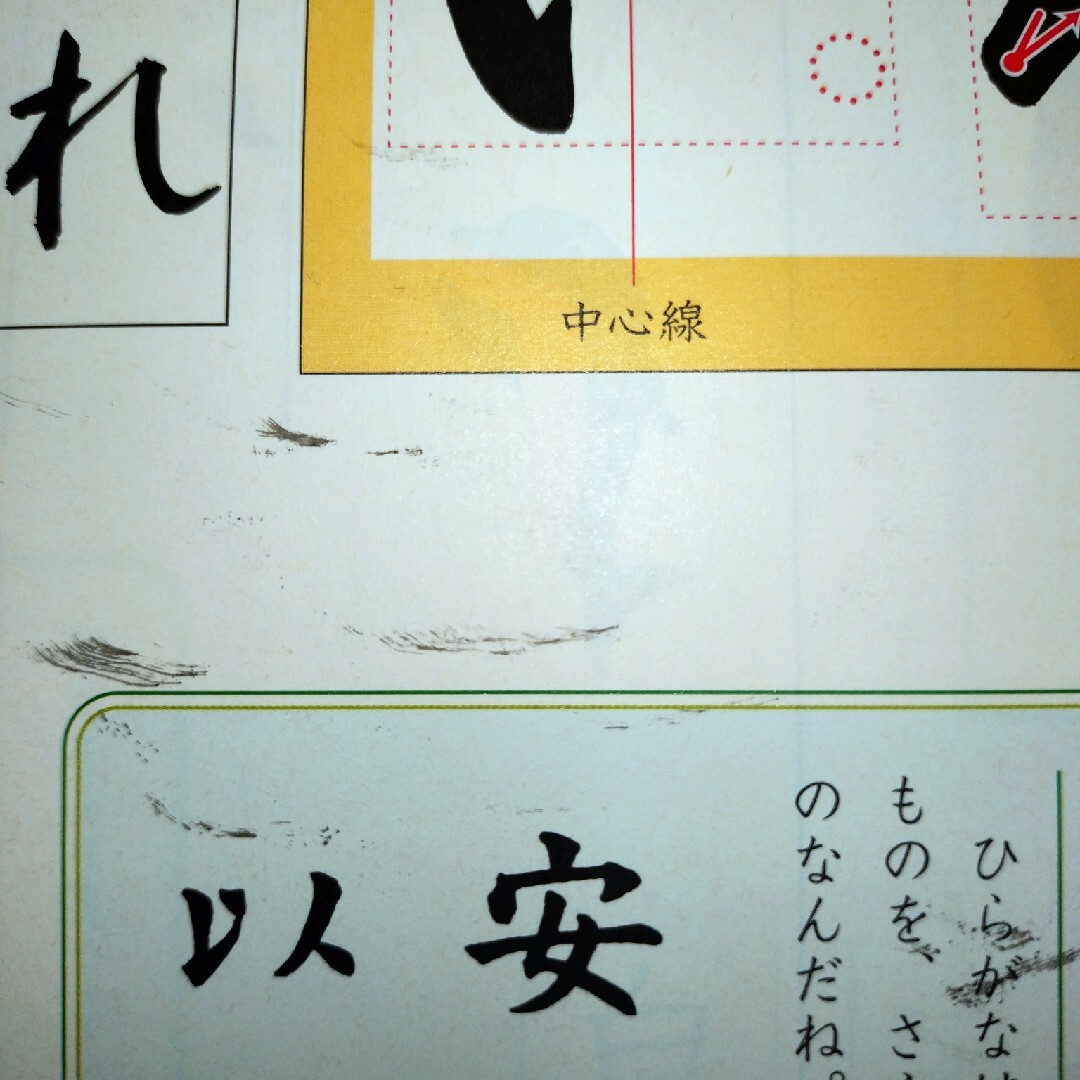 れ
中心線
ひらがな
ものを、さ
のなんだね。
安
以